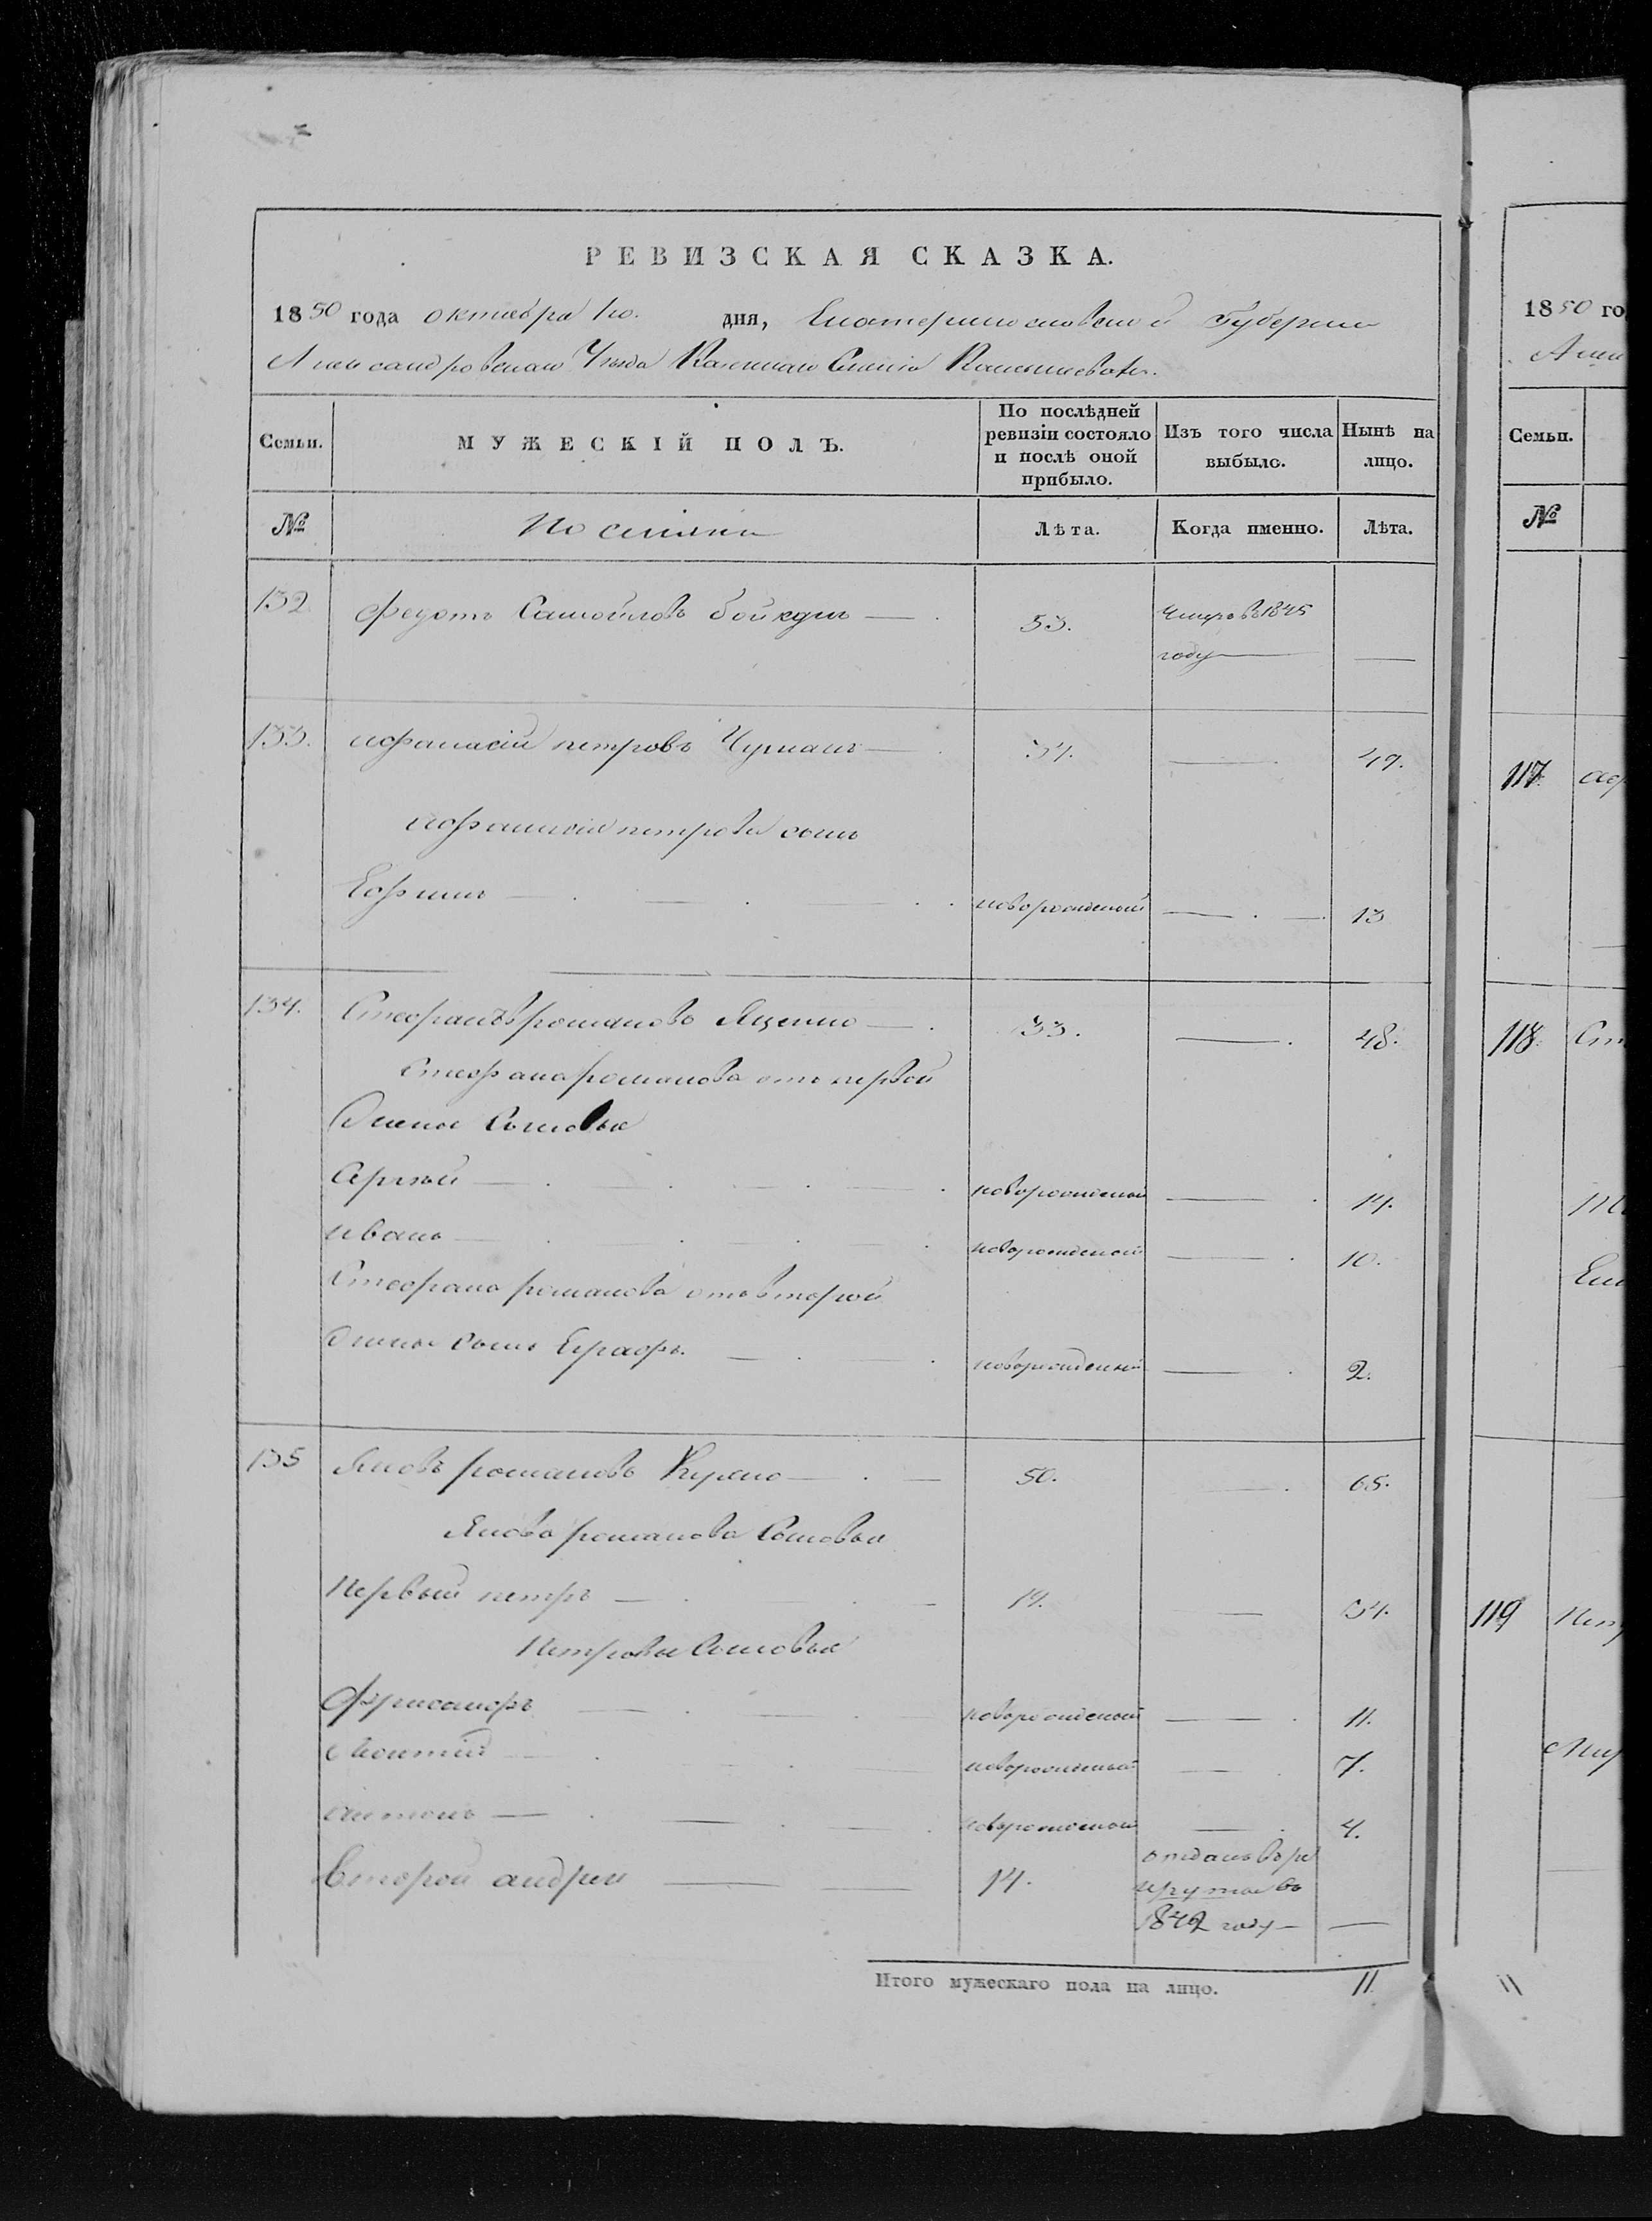 РЕВИЗСКАЯ СКАЗКА.
1850 года октября 1го. дня, Екатеринославской Губернии
Александровскаго Уезда Казеннаго Селенія
Семьи. МУЖЕСКІЙ ПОЛЪ. По послѣдней ревизіи состояло и послѣ оной прибыло. Изъ того числа выбыло. Нынѣ на лицо.
№ Поселяне Лѣта. Когда именно. Лѣта.
132 Федотъ Самойловъ Бойкдъ 53. Умеръ въ 1845
году
133. Афанасій петровъ Чуманъ 34. 49.
Афанасія петрова сынъ
Ефимъ новорожденый 13
134. Стефанъ романовъ Яценко 33. 48.
Стефана романова отъ первой
Жены Сыновья
Сергѣй новорожденый 14.
Иванъ новорожденой 10.
Стефана романова отъ второй
Жены Сынъ Еграфъ. новорожденый 2.
135 Яковъ романовъ 50. 65.
Якова романова Сыновья
Первый петръ 19. 34.
Петровы Сыновья
новорожденый 11.
Леонтій новорожденый 7.
Антонъ новорожденой 4.
Второй андрей 14. отданъ въ ре
круты въ
1842 году
Итого мужескаго пола на лицо. 11
1850 го
Семьи.
№
117. Аф
118. Ст
119 Пет
11